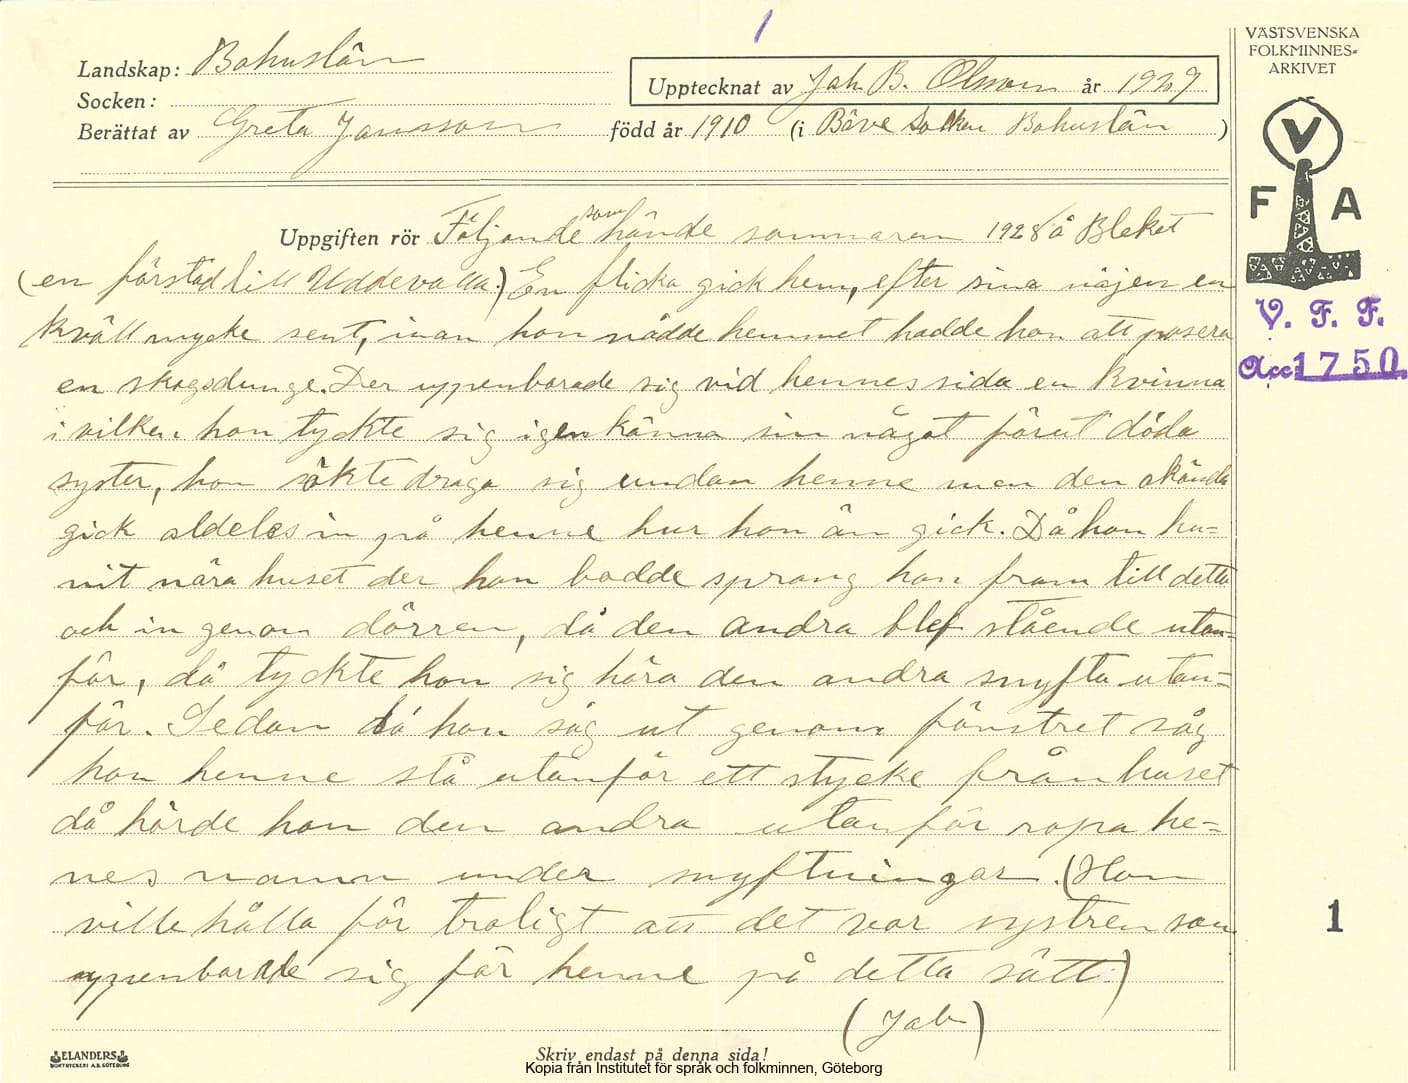 1
VÄSTSVENSKA
FOLKMINNES-
ARKIVET
Landskap: Bohuslän
Upptecknat av Joh. B. Olsson år 1929
Socken:
Berättat av Greta Jansson född år 1910 (i Bäve Socken Bohuslän)
V
F A
Uppgiften rör Följande som hände sommaren 1928 å Bleket
(en förstad till Uddevalla.) En flicka gick hem, efter sina nöjen en
kväll mycke sent, inan hon nådde hemmet hadde hon att pasera
en skogsdunge. Der uppenbarade sig vid hennes sida en kvinna
i vilken hon tyckte sig igenkänna sin något förut döda
syster, hon sökte draga sig undan henne men den okända
gick aldeles in på henne hur hon än gick. Då hon hu=
nit nära huset der hon bodde sprang hon fram till detta
och in genom dörren, då den andra blef stående utan=
för, då tyckte hon sig höra den andra snyfta utan=
för. Sedan då hon såg ut genom fönstret såg
hon henne stå utanför ett stycke från huset
då hörde hon den andra utanför ropa he=
nes namn under snyftningar. (Hon
ville hålla för troligt att det var systren som
uppenbarade sig för henne på detta sätt.)
(Job)
V. F. F.
Acc. 1750
1
ELANDERS
BOKTRYCKERI A.B. GÖTEBORG
Skriv endast på denna sida!
Kopia från Institutet för språk och folkminnen, Göteborg